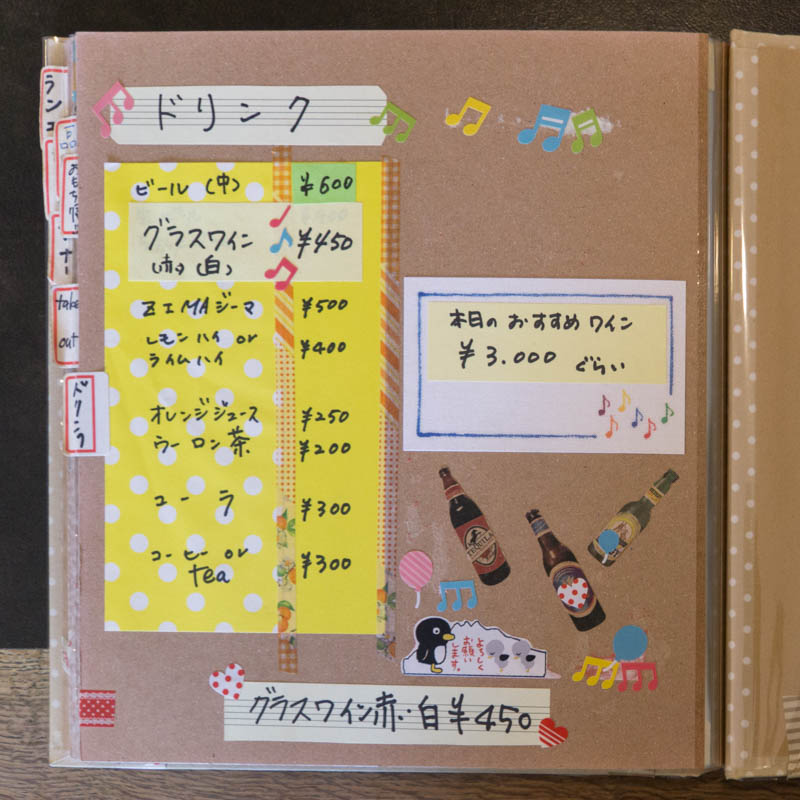 ドリンク
ビール (中) ¥600
グラスワイン ¥450
(赤) (白)
ZIMAジーマ ¥500
レモンハイ or
ライムハイ ¥400
オレンジジュース ¥250
ウーロン茶 ¥200
コーラ ¥300
コーヒー or
tea ¥300
本日の おすすめ ワイン
¥3.000 ぐらい
TEQUILA
よろしく
お願い
します。
グラスワイン赤・白 ¥450
take
out
ドリンク